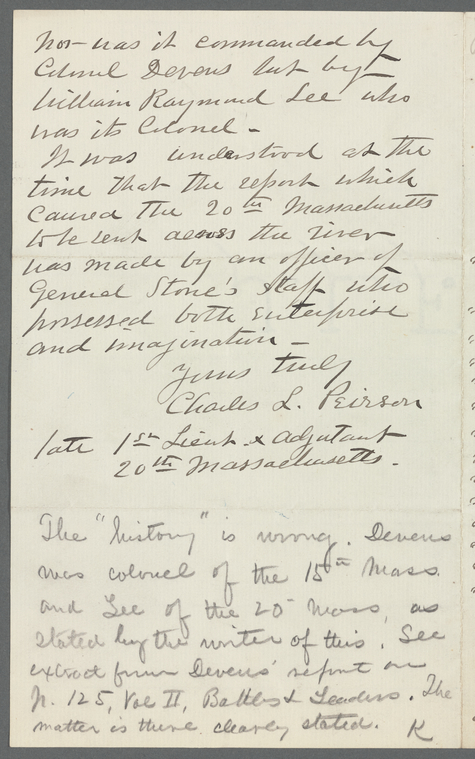 nor was it commanded by
Colonel Devens but by
William Raymond Lee who
was its Colonel -
It was understood at the
time that the report which
caused the 20th Massachusetts
to be sent across the river
was made by an officer of
General Stone's staff who
possessed both enterprise
and imagination -
Yours truly
Charles L. Peirson
late 1st Lieut & Adjutant
20th Massachusetts.
The "history" is wrong. Devens
was colonel of the 15th Mass.
and Lee of the 20 Mass, as
stated by the writer of this. See
extract from Devens' report on
p. 125, Vol II, Battles & Leaders. The
matter is there clearly stated. K